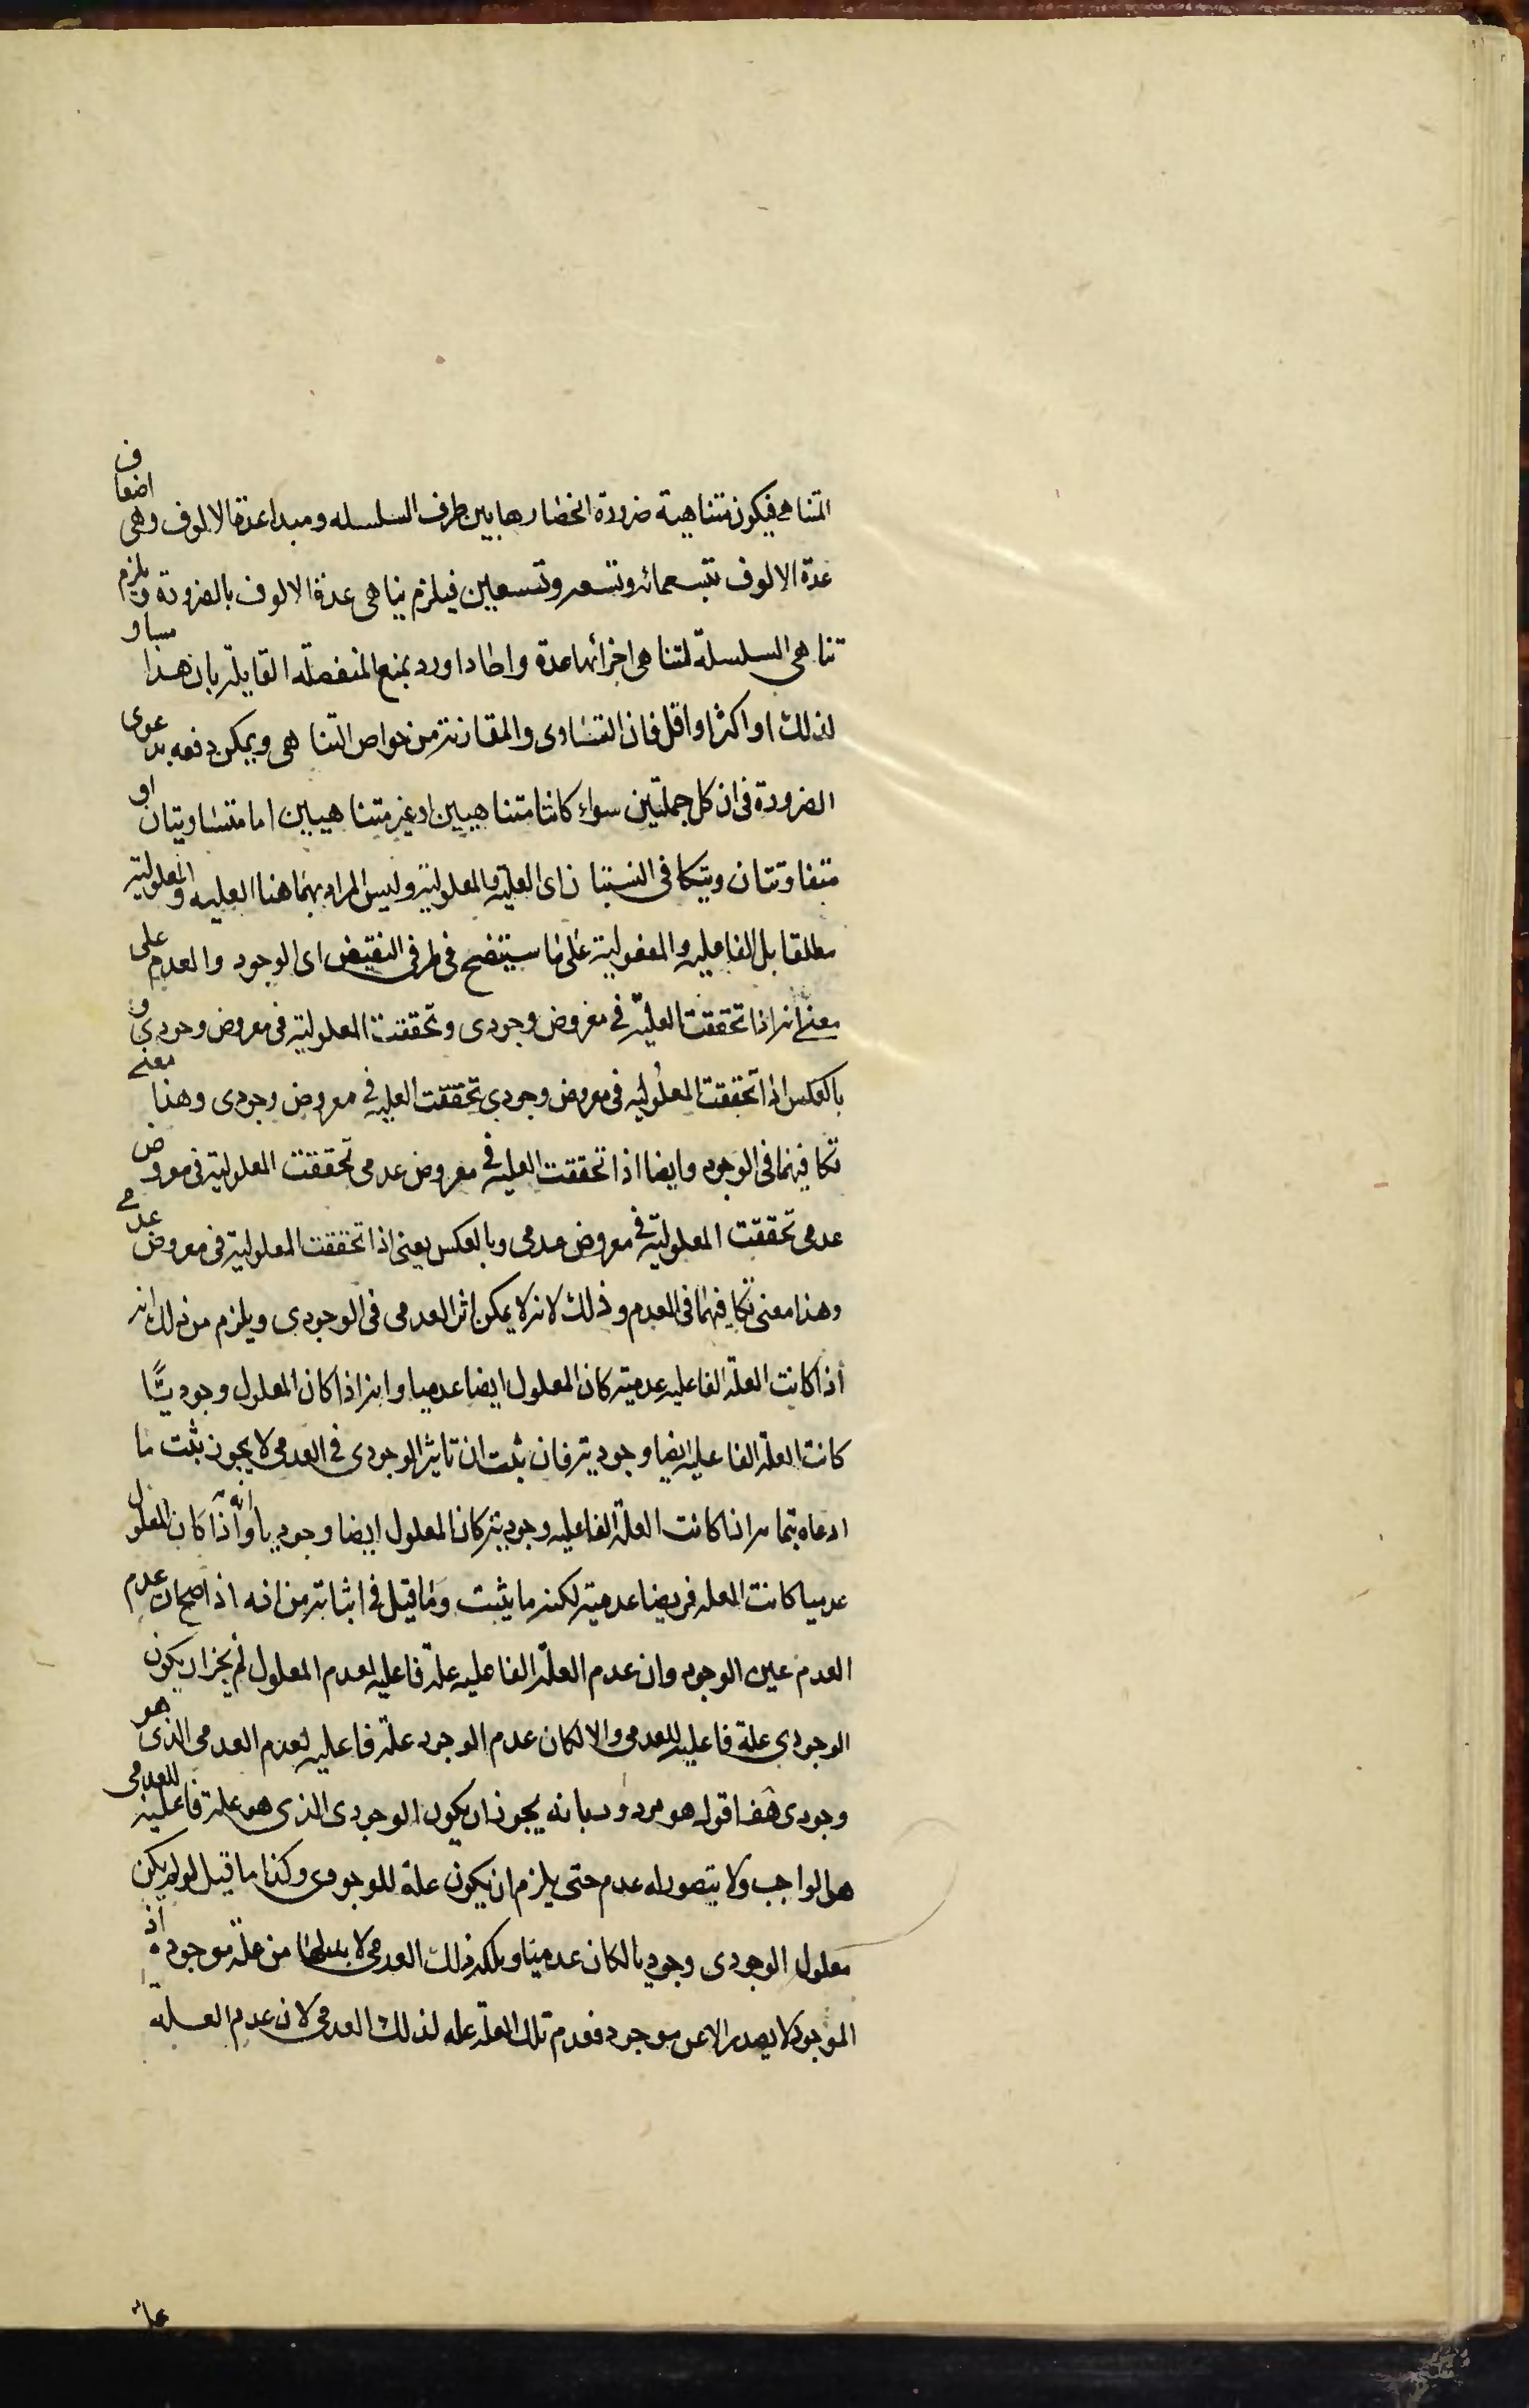 المتناهى فيكون متناهية ضرورة انحصارها بين طرف السلسله ومبدا عدة الالوف وهى اضعاف
عدة الالوف بتسعمائه وتسعه وتسعين فيلزم تناهى عدة الالوف بالضرورة ويلزم
تناهى السلسلة لتناهى اجزائها عدة واحادا اورد بمنع المنفصلة القايلة بان هذا مساو
لذلك او اكثر او اقل فان التساوى والمقارنة من خواص التناهى ويمكن دفعه بدعوى
الضرورة فى ان كل جملتين سواء كانتا متناهيين او غير متناهيين اما متساويتان او
متفاوتتان ويتكافى النسبتان اى العلية والمعلولية وليس المراد بهما هنا العليه والمعلولية
مطلقا بل الفاعليه والمفعولية على ما سيتضح فى طرفى النقيض اى الوجود والعدم على
معنى انه اذا تحققت العلية فى معروض وجودى وتحققت المعلولية فى معروض وجودى و
بالعكس اذا تحققت المعلوليه فى معروض وجودى تحققت العليه فى معروض وجودى وهذا معنى
تكافيهما فى الوجود وايضا اذا تحققت العليه فى معروض عدمى تحققت المعلولية فى معروض
عدمى تحققت المعلولية فى معروض عدمى وبالعكس يعنى اذا تحققت المعلولية فى معروض عدمى
وهذا معنى تكافيهما فى العدم وذلك لانه لا يمكن اثر العدمى فى الوجودى ويلزم من ذلك انه
اذا كانت العلة الفاعليه عدمية كان المعلول ايضا عدميا وانه اذا كان المعلول وجوديا
كانت العلة الفاعليه ايضا وجودية فان ثبت ان تاثير الوجودى فى العدمى لا يجوز ثبت ما
ادعاه بتمامه اذا كانت العلة الفاعليه وجودية كان المعلول ايضا وجوديا وانه اذا كان المعلول
عدميا كانت العله فريضا عدمية لكنه ما يثبت وما قيل فى اثباته من انه اذا صح ان عدم
العدم عين الوجود وان عدم العلة الفاعليه علة فاعليه لعدم المعلول لم يجز ان يكون
الوجودى علة فاعليه للعدمى والا لكان عدم الوجود علة فاعليه لعدم العدمى الذى هو
وجودى هف اقول هو مردود بانه يجوز ان يكون الوجودى الذى هو علة فاعلية للعدمى
هو الواجب ولا يتصور له عدم حتى يلزم ان يكون علة للوجودى وكذا ما قيل لو لم يكن
معلول الوجودى وجوديا لكان عدميا وملكه ذلك العدمى لا بد لها من علة موجودة اذ
الموجود لا يصدر الا عن موجود فعدم تلك العلة عله لذلك العدمى لان عدم العلة